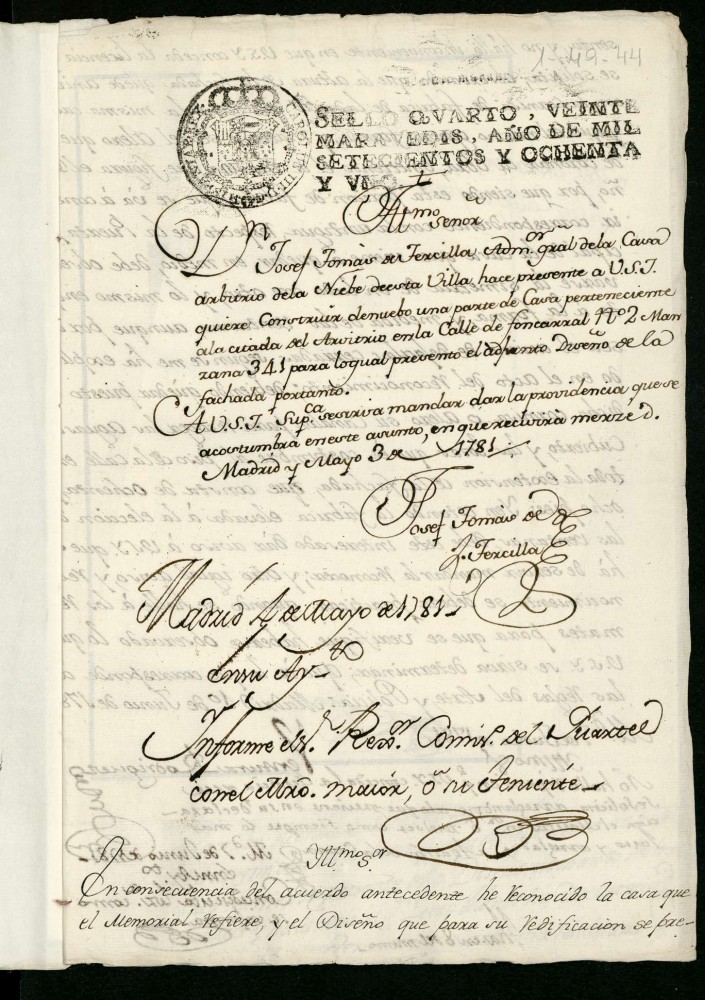 1-49-44
SELLO QVARTO, VEINTE
MARAVEDIS, AÑO DE MIL
SETECIENTOS Y OCHENTA
Y VNO
Yllmo Señor
Dn Josef Tomás de Tercilla Admor gral dela Casa
arbitrio dela Niebe deesta Villa, hace presente a V.S.I.
quiere Construir denuebo una parte de Casa perteneciente
ala citada del Arvitrio enla Calle de foncarral Nº 2 Man
zana 341 para loqual presento el adjunto Diseño de la
fachada portanto.
A V.S.I. Supca sesirva mandar dar la providencia que se
acostumbra eneste asunto, en que recivirá merzed.
Madrid y Mayo 3 de 1781
Josef Tomás de
Tercilla
Madrid 4 de Mayo de 1781
ensu Aymto
Ynforme el Sr. Rexor. Comiso. del Quartel
con el Mro. maiór, o su Teniente
Yllmo Sor
En consecuencia del acuerdo antecedente he reconocido la casa que
el Memorial refiere, y el Diseño que para su redificacion se pre-